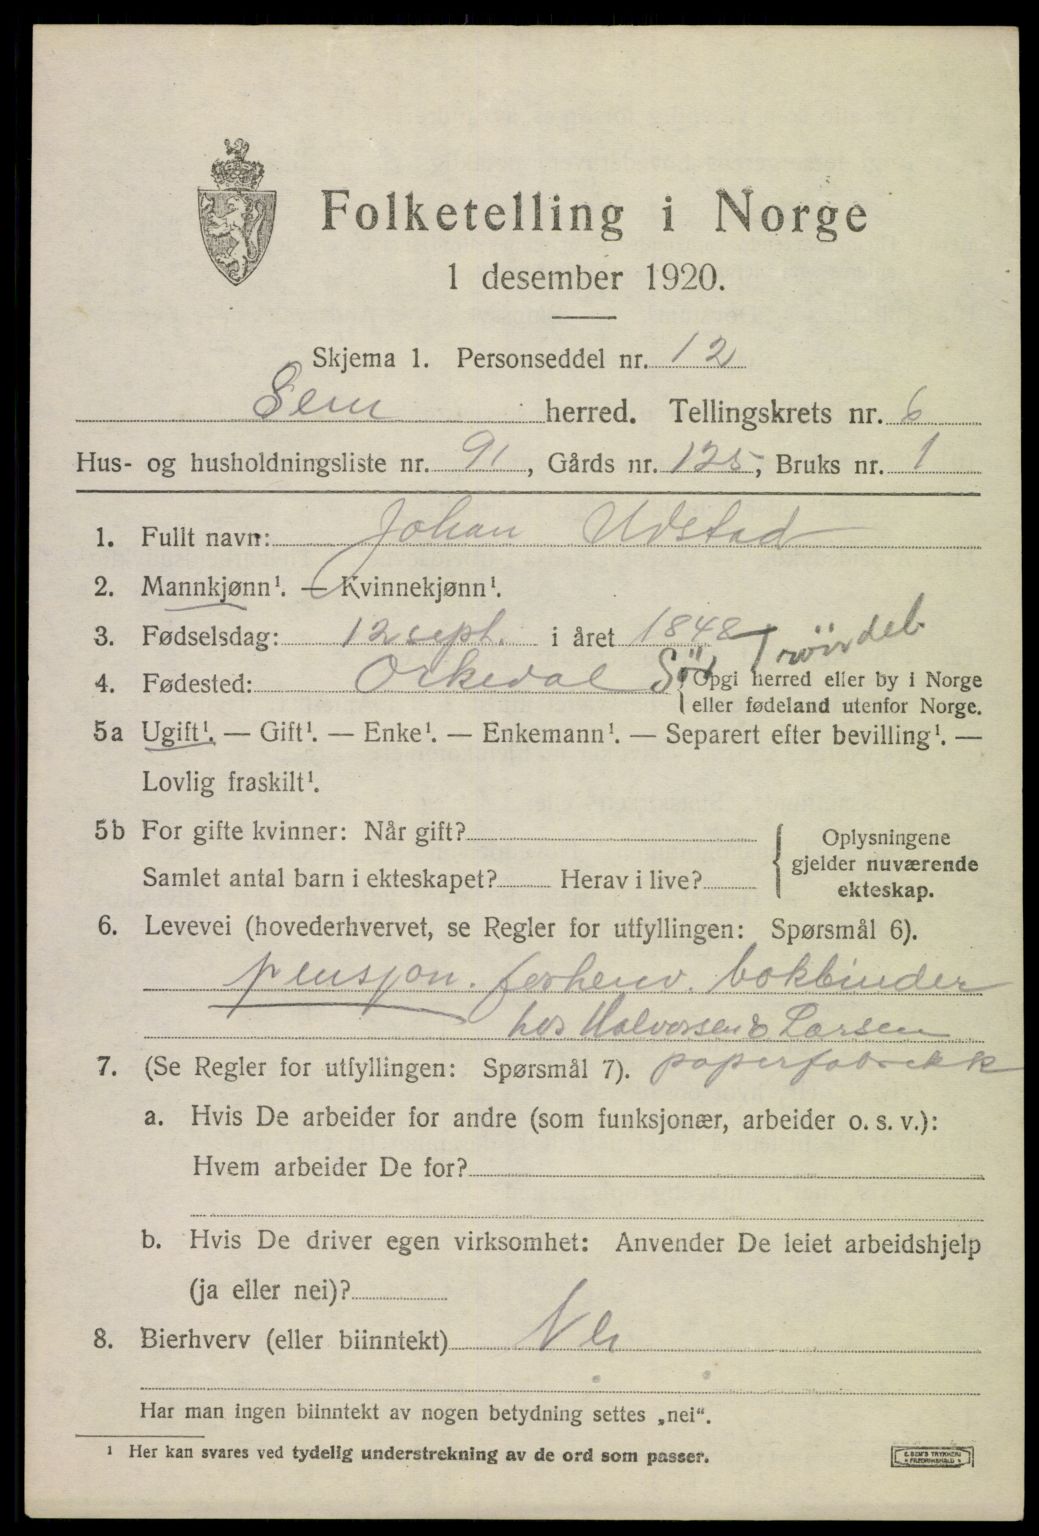 Folketelling i Norge
1 desember 1920.
Skjema 1. Personseddel nr. 12
Sem herred. Tellingskrets nr. 6
Hus- og husholdningsliste nr. 91, Gårds nr. 125, Bruks nr. 1
1. Fullt navn: Johan Udstad
2. Mannkjønn¹. — Kvinnekjønn¹.
3. Fødselsdag: 12 sept. i året 1848
4. Fødested: Orkedal Opgi herred eller by i Norge
eller fødeland utenfor Norge.
5a Ugift¹. — Gift¹. — Enke¹. — Enkemann¹. — Separert efter bevilling¹. —
Lovlig fraskilt¹.
5b For gifte kvinner: Når gift?
Samlet antal barn i ekteskapet? Herav i live?
Oplysningene
gjelder nuværende
ekteskap.
6. Levevei (hovederhvervet, se Regler for utfyllingen: Spørsmål 6).
pensjon. forhenv. bokbinder
hos Halvorsen & Larsen
7. (Se Regler for utfyllingen: Spørsmål 7). papirfabrikk
a. Hvis De arbeider for andre (som funksjonær, arbeider o. s. v.):
Hvem arbeider De for?
b. Hvis De driver egen virksomhet: Anvender De leiet arbeidshjelp
(ja eller nei)?
8. Bierhverv (eller biinntekt) Nei
Har man ingen biinntekt av nogen betydning settes „nei“.
¹ Her kan svares ved tydelig understrekning av de ord som passer.
E. SEM'S TRYKKERI
FREDRIKSHALD